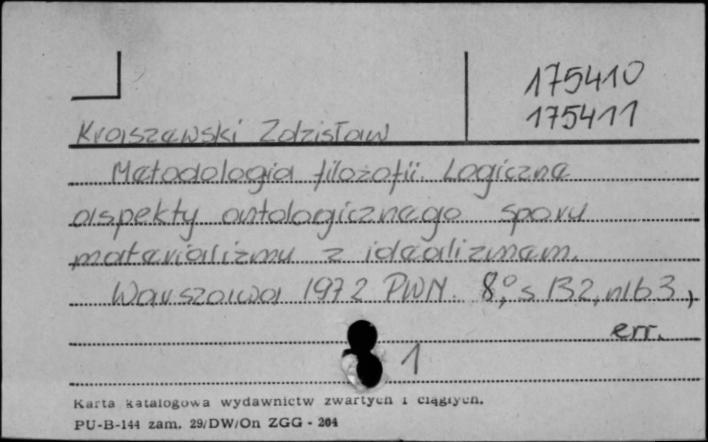 175410
175411
Kraszewski Zdzisław
Metodologia filozofii. Logiczne
aspekty ontologicznego sporu
materializmu z idealizmem.
Warszawa 1972 PWN. 8,° s 132, nlb 3,
err.
1
Karta katalogowa wydawnictw zwartych i ciągłych.
PU-B-144 zam. 29/DW/On ZGG - 204